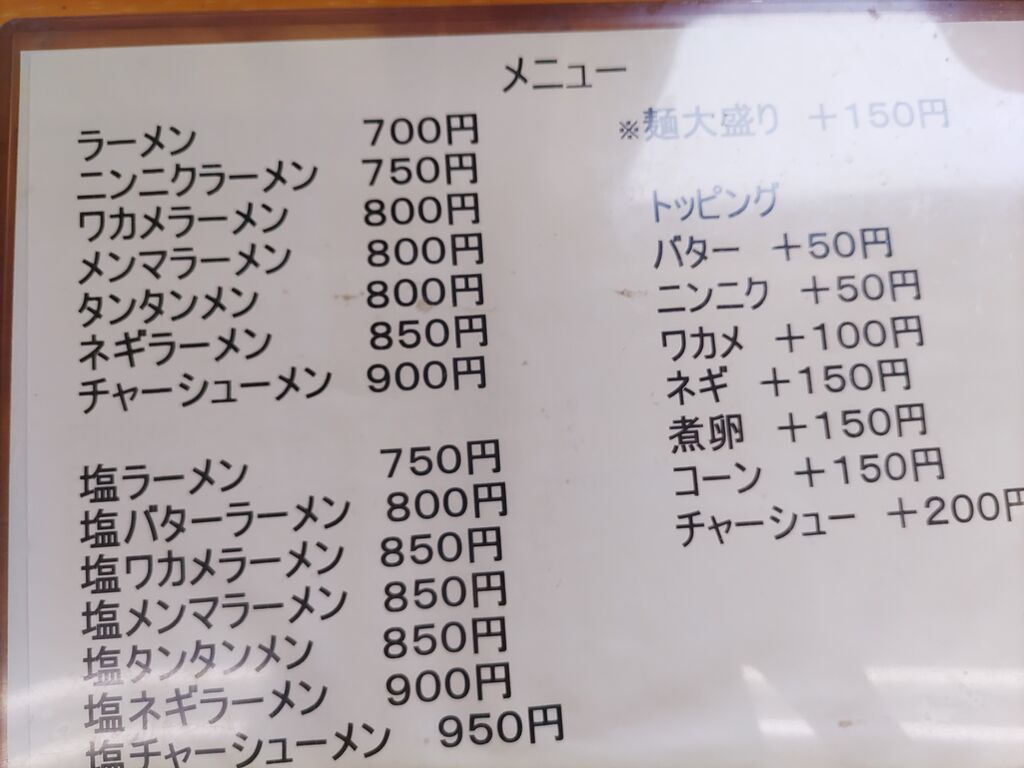 メニュー
ラーメン 700円
ニンニクラーメン 750円
ワカメラーメン 800円
メンマラーメン 800円
タンタンメン 800円
ネギラーメン 850円
チャーシューメン 900円
塩ラーメン 750円
塩バターラーメン 800円
塩ワカメラーメン 850円
塩メンマラーメン 850円
塩タンタンメン 850円
塩ネギラーメン 900円
塩チャーシューメン 950円
※麺大盛り +150円
トッピング
バター +50円
ニンニク +50円
ワカメ +100円
ネギ +150円
煮卵 +150円
コーン +150円
チャーシュー +200円